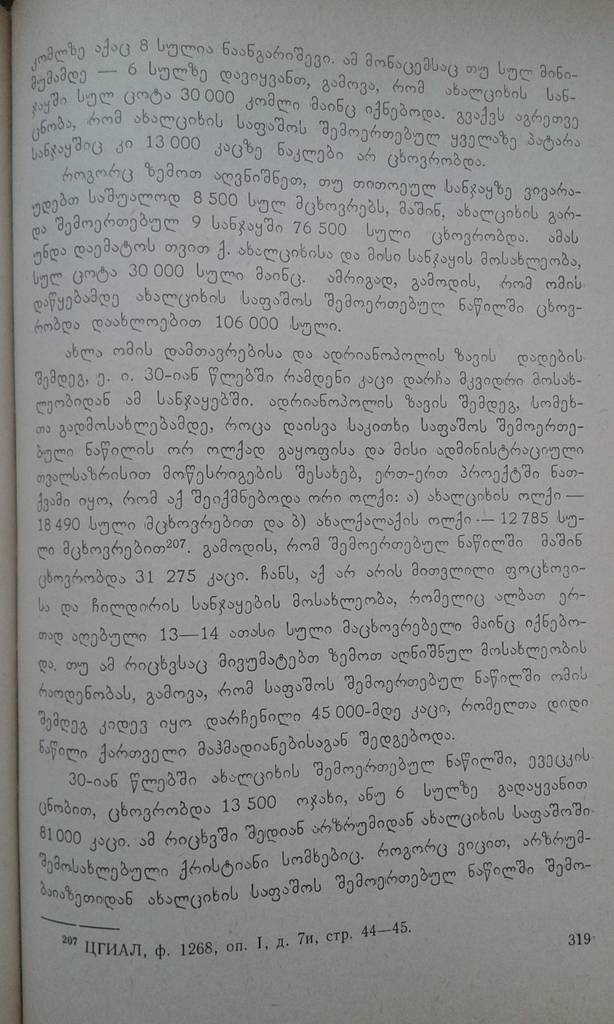 კომლზე აქაც 8 სულია ნაანგარიშევი. ამ მონაცემსაც თუ სულ მინი-
მუმამდე — 6 სულზე დავიყვანთ, გამოვა, რომ ახალციხის სან-
ჯაყში სულ ცოტა 30 000 კომლი მაინც იქნებოდა. გვაქვს აგრეთვე
ცნობა, რომ ახალციხის საფაშოს შემოერთებულ ყველაზე პატარა
სანჯაყშიც კი 13 000 კაცზე ნაკლები არ ცხოვრობდა.
როგორც ზემოთ აღვნიშნეთ, თუ თითოეულ სანჯაყზე ვივარა-
უდებთ საშუალოდ 8 500 სულ მცხოვრებს, მაშინ, ახალციხის გარ-
და შემოერთებულ 9 სანჯაყში 76 500 სული ცხოვრობდა. ამას
უნდა დაემატოს თვით ქ. ახალციხისა და მისი სანჯაყის მოსახლეობა,
სულ ცოტა 30 000 სული მაინც. ამრიგად, გამოდის, რომ ომის
დაწყებამდე ახალციხის საფაშოს შემოერთებულ ნაწილში ცხოვ-
რობდა დაახლოებით 106 000 სული.
ახლა ომის დამთავრებისა და ადრიანოპოლის ზავის დადების
შემდეგ, ე. ი. 30-იან წლებში რამდენი კაცი დარჩა მკვიდრი მოსახ-
ლეობიდან ამ სანჯაყებში. ადრიანოპოლის ზავის შემდეგ, სომეხ-
თა გადმოსახლებამდე, როცა დაისვა საკითხი საფაშოს შემოერთე-
ბული ნაწილის ორ ოლქად გაყოფისა და მისი ადმინისტრაციული
თვალსაზრისით მოწესრიგების შესახებ, ერთ-ერთ პროექტში ნათ-
ქვამი იყო, რომ აქ შეიქმნებოდა ორი ოლქი: ა) ახალციხის ოლქი —
18 490 სული მცხოვრებით და ბ) ახალქალაქის ოლქი — 12 785 სუ-
ლი მცხოვრებით²⁰⁷. გამოდის, რომ შემოერთებულ ნაწილში მაშინ
ცხოვრობდა 31 275 კაცი. ჩანს, აქ არ არის მითვლილი ფოცხოვი-
სა და ჩილდირის სანჯაყების მოსახლეობა, რომელიც ალბათ ერ-
თად აღებული 13—14 ათასი სული მაცხოვრებელი მაინც იქნებო-
და. თუ ამ რიცხვსაც მივუმატებთ ზემოთ აღნიშნულ მოსახლეობის
რაოდენობას, გამოვა, რომ საფაშოს შემოერთებულ ნაწილში ომის
შემდეგ კიდევ იყო დარჩენილი 45 000-მდე კაცი, რომელთა დიდი
ნაწილი ქართველი მაჰმადიანებისაგან შედგებოდა.
30-იან წლებში ახალციხის შემოერთებულ ნაწილში, ევეცკის
ცნობით, ცხოვრობდა 13 500 ოჯახი, ანუ 6 სულზე გადაყვანით
81 000 კაცი. ამ რიცხვში შედიან არზრუმიდან ახალციხის საფაშოში
შემოსახლებული ქრისტიანი სომხებიც. როგორც ვიცით, არზრუმ-
ბაიაზეთიდან ახალციხის საფაშოს შემოერთებულ ნაწილში შემო-
²⁰⁷ ЦГИАЛ, ф. 1268, оп. I, д. 7и, стр. 44—45.
319